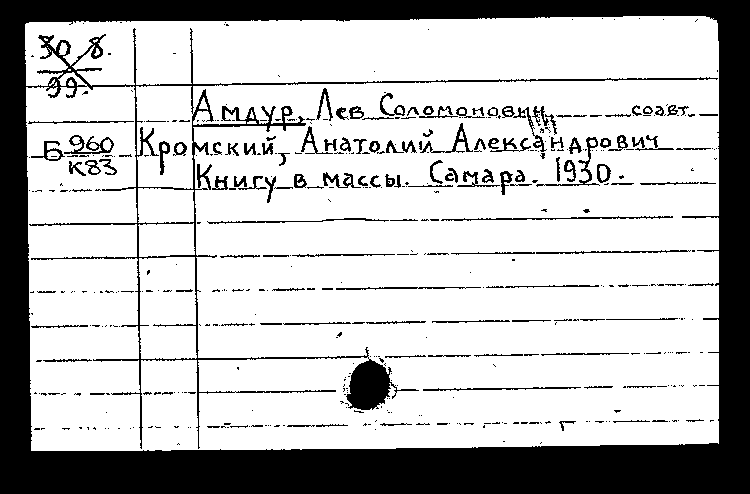 30 8.
99.
Амдур, Лев Соломонович, соавт.
Б 960 Кромский, Анатолий Александрович
К83
Книгу в массы. Самара. 1930.